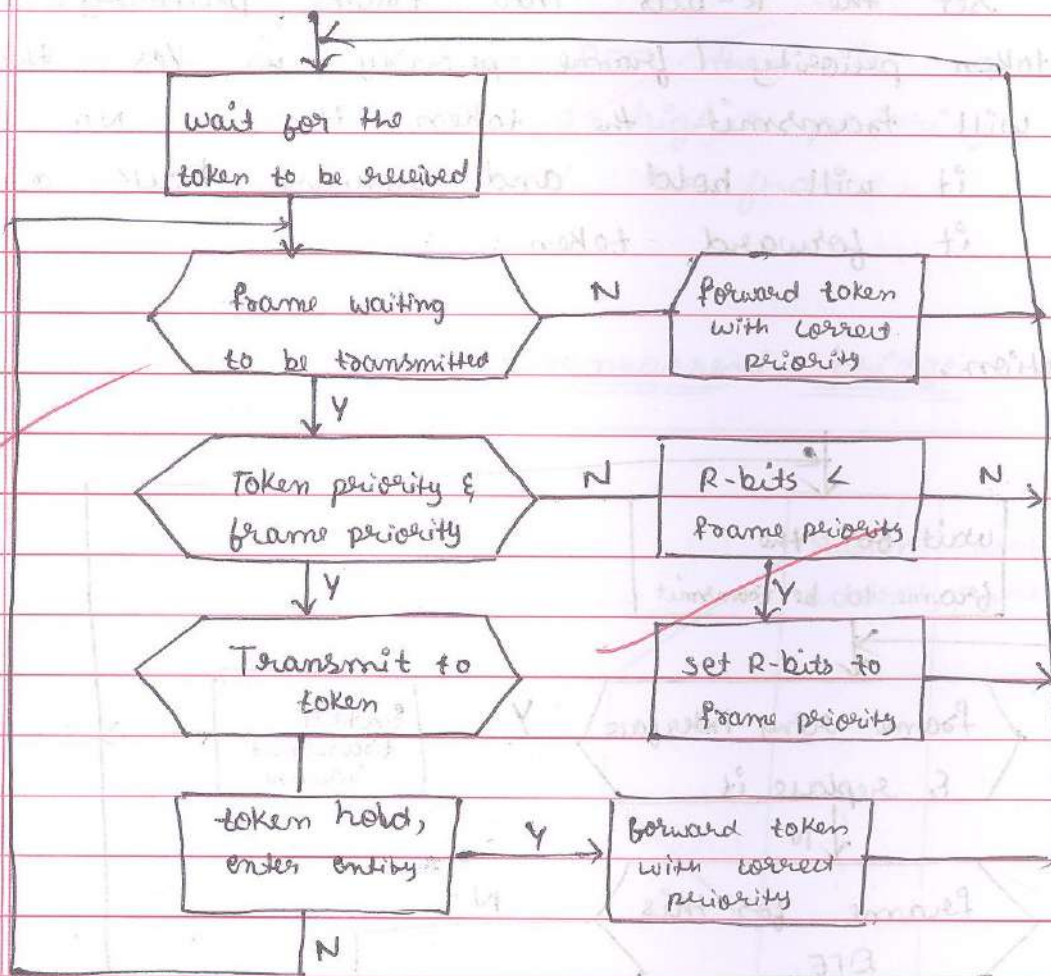 wait for the
token to be received
frame waiting
to be transmitted
N
forward token
with correct
priority
Y
Token priority &
frame priority
N
R-bits <
frame priority
N
Y
Y
Transmit to
token
set R-bits to
frame priority
token hold,
enter entity
Y
forward token
with correct
priority
N